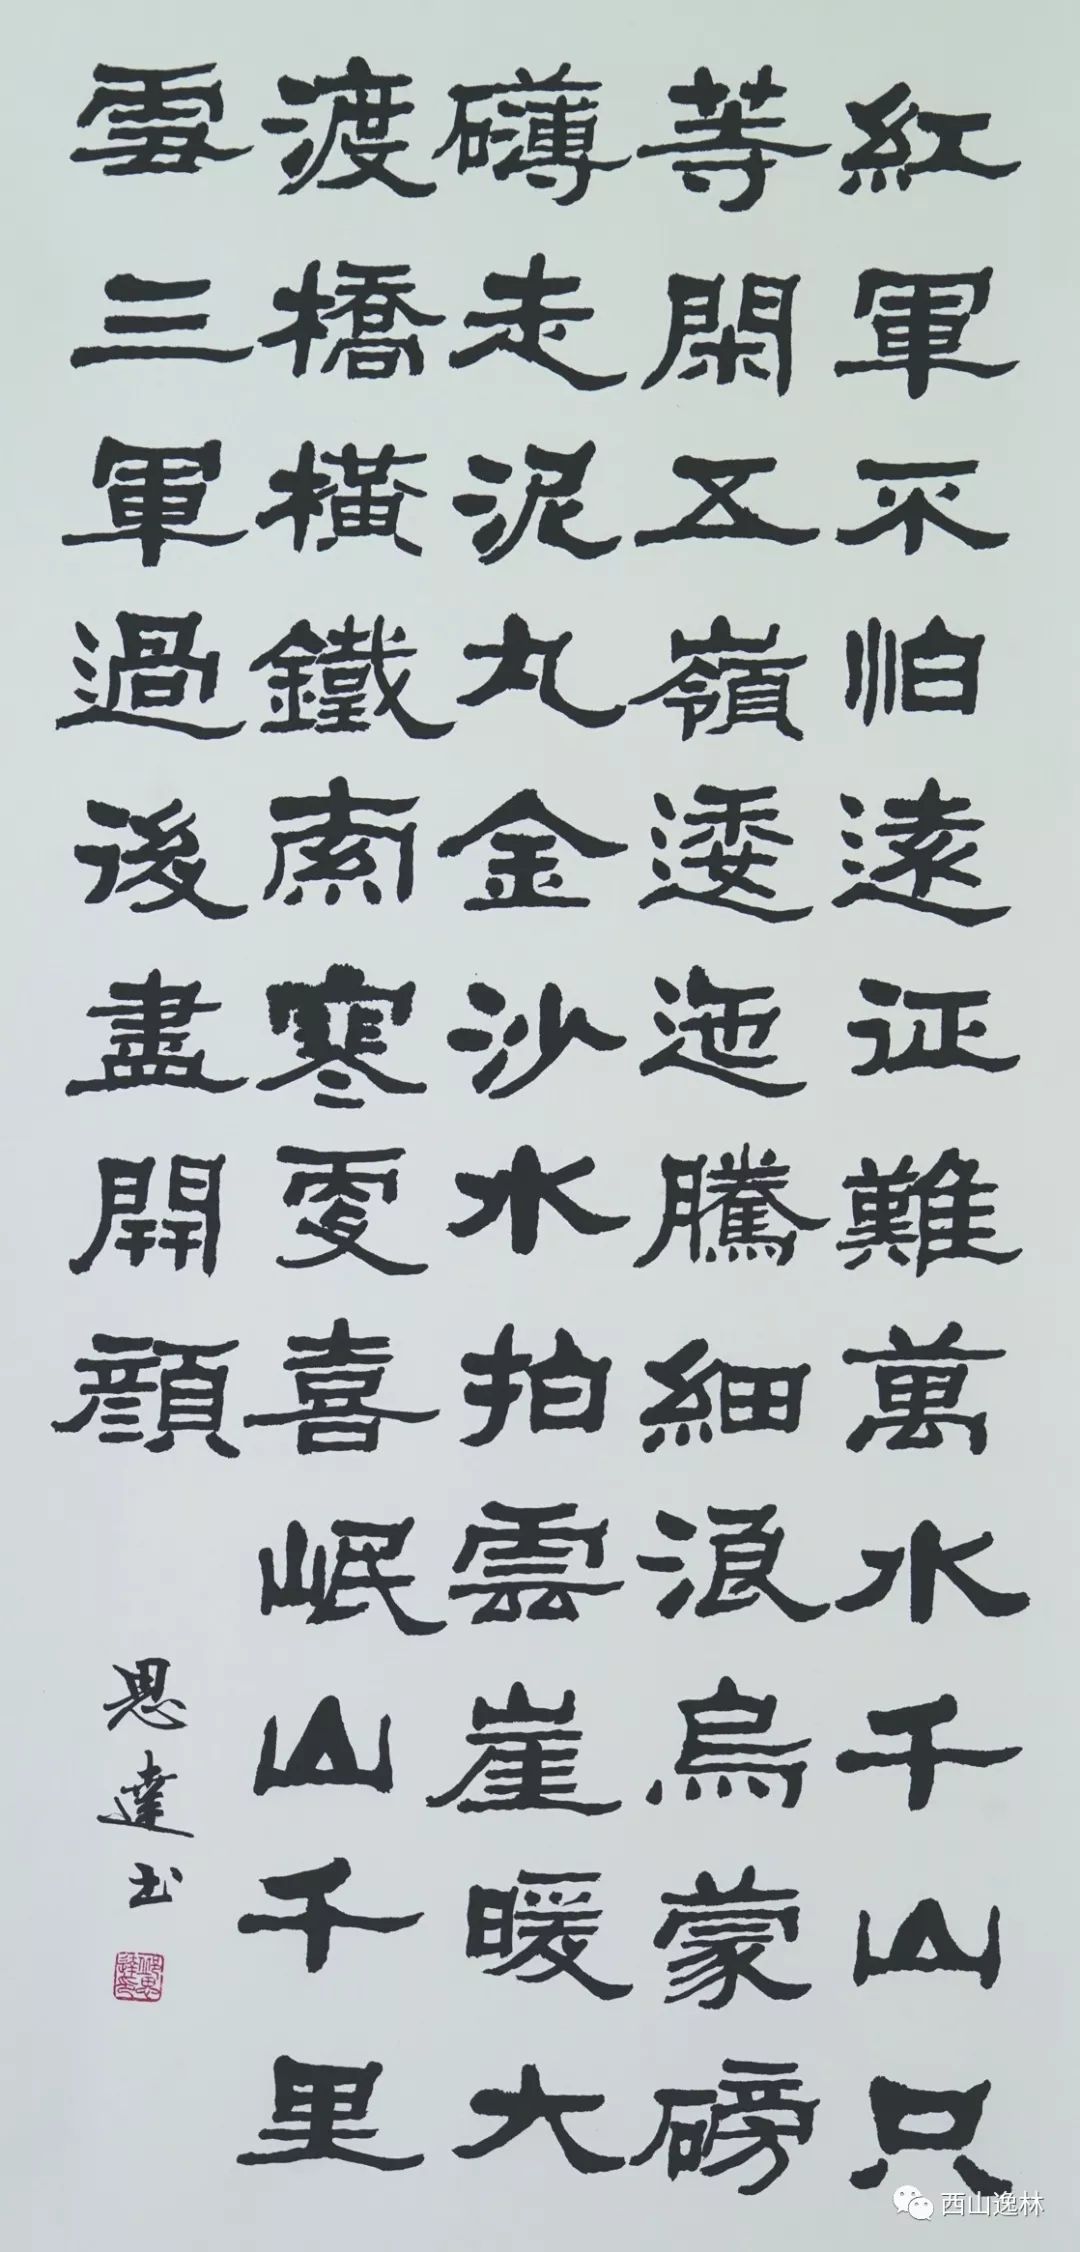 紅軍不怕遠征難萬水千山只
等閑五嶺逶迤騰細浪烏蒙磅
礴走泥丸金沙水拍雲崖暖大
渡橋橫鐵索寒更喜岷山千里
雪三軍過後盡開顏
思達书
西山逸林